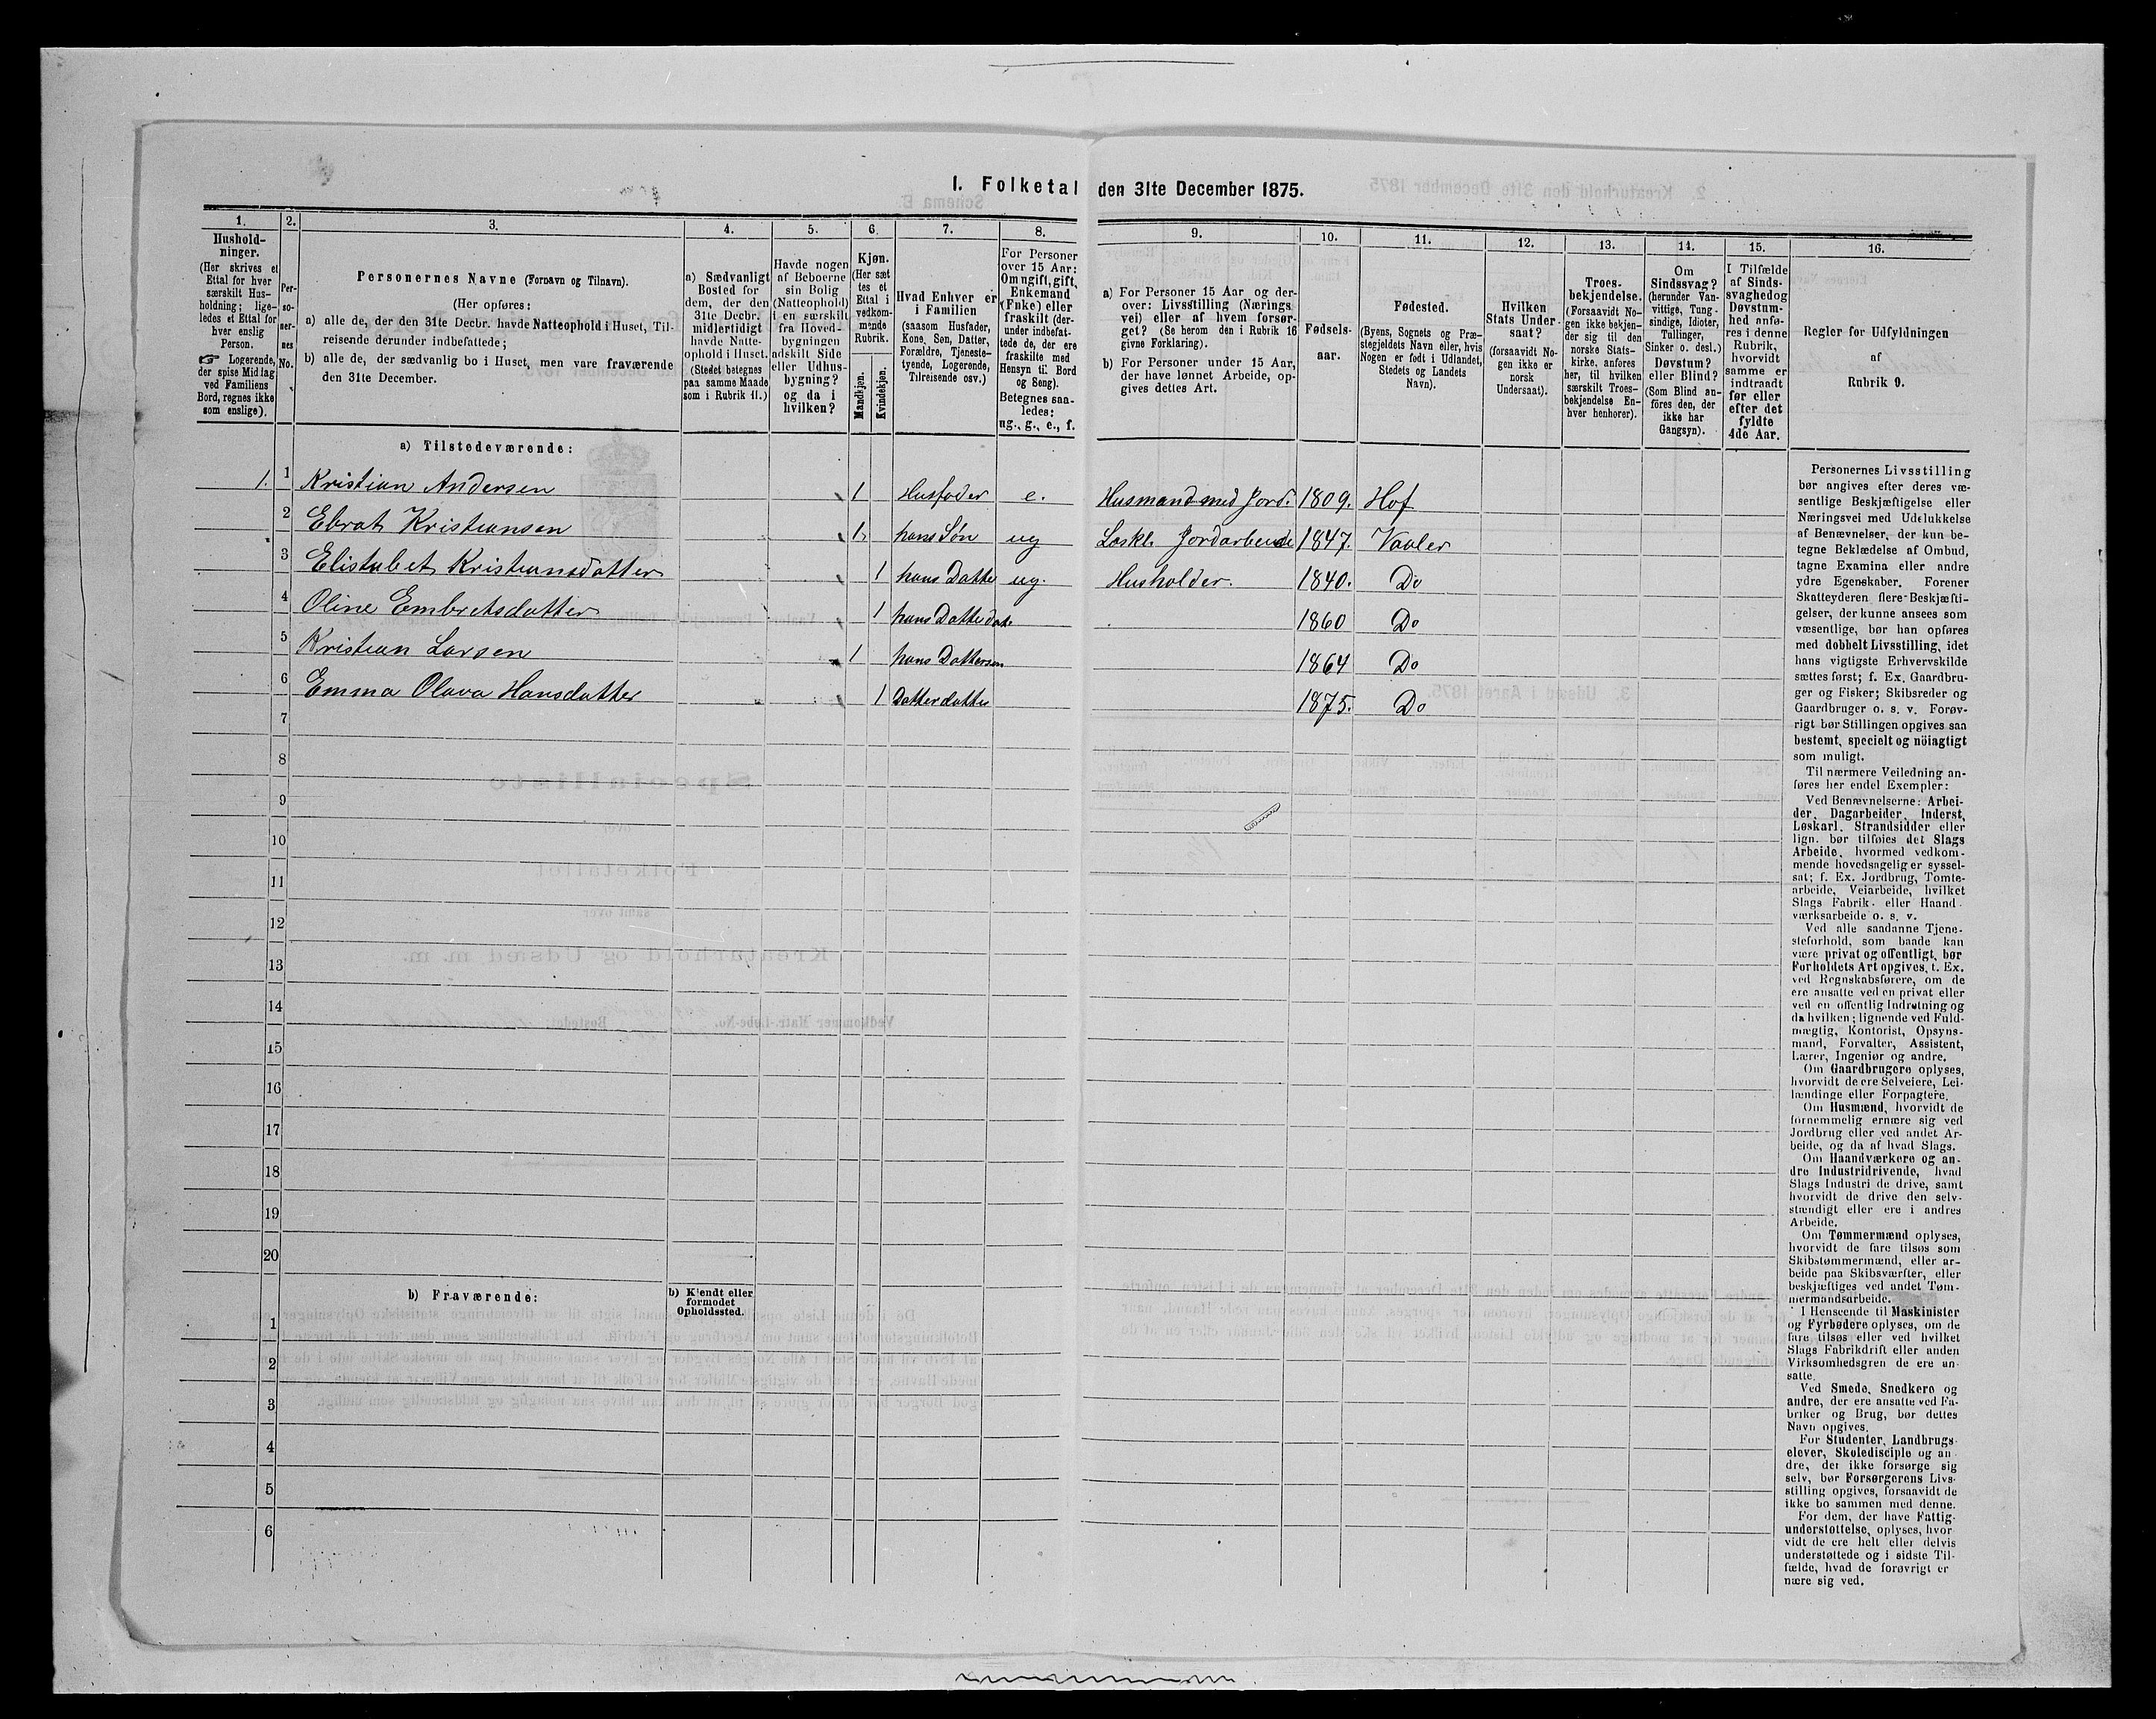 1. Folketal den 31te December 1875.
1. 2. 3. 4. 5. 6. 7. 8. 9. 10. 11. 12. 13. 14. 15. 16.
Hushold-
ninger.
(Her skrives et
Ettal for hver
særskilt Hus-
holdning; lige-
ledes et Ettal for
hver enslig
Person.
☞ Logerende,
der spise Middag
ved Familiens
Bord, regnes ikke
som enslige).
Per-
so-
ner-
nes
No.
Personernes Navne (Fornavn og Tilnavn).
(Her opføres:
a) alle de, der den 31te Decbr. havde Natteophold i Huset, Til-
reisende derunder indbefattede;
b) alle de, der sædvanlig bo i Huset, men vare fraværende
den 31te December.
a) Sædvanligt
Bosted for
dem, der den
31te Decbr.
midlertidigt
havde Natte-
ophold i Huset.
(Stedet betegnes
paa samme Maade
som i Rubrik 11.)
Havde nogen
af Beboerne
sin Bolig
(Natteophold)
i en særskilt
fra Hoved-
bygningen
adskilt Side
eller Udhus-
bygning?
og da i
hvilken?
Kjøn.
(Her sæt
tes et
Ettal i
vedkom-
mende
Rubrik.
Mandkjøn.
Kvindekjøn.
Hvad Enhver er
i Familien
(saasom Husfader,
Kone, Søn, Datter,
Forældre, Tjeneste-
tyende, Logerende,
Tilreisende osv.)
For Personer
over 15 Aar:
Om ugift, gift,
Enkemand
(Enke) eller
fraskilt (der-
under indbefat-
tede de, der ere
fraskilte med
Hensyn til Bord
og Seng).
Betegnes saa-
ledes:
ug., g., e., f.
a) For Personer 15 Aar og der-
over: Livsstilling (Nærings
vei) eller af hvem forsør-
get? (Se herom den i Rubrik 16
givne Forklaring).
b) For Personer under 15 Aar,
der have lønnet Arbeide, op-
gives dettes Art.
Fødsels-
aar.
Fødested.
(Byens, Sognets og Præ-
stegjeldets Navn eller, hvis
Nogen er født i Udlandet,
Stedets og Landets
Navn).
Hvilken
Stats Under-
saat?
(forsaavidt No-
gen ikke er
norsk
Undersaat).
Troes-
bekjendelse.
(Forsaavidt No-
gen ikke bekjen-
der sig til den
norske Stats-
kirke, anføres
her, til hvilken
særskilt Troes-
bekjendelse En-
hver henhører).
Om
Sindssvag?
(herunder Van-
vittige, Tung-
sindige, Idioter,
Tullinger,
Sinker o. desl.)
Døvstum?
eller Blind?
(Som Blind an-
föres den, der
ikke har
Gangsyn).
I Tilfælde
af Sinds-
svaghed og
Døvstum-
hed anfø-
res i denne
Rubrik,
hvorvidt
samme er
indtraadt
før eller
efter det
fyldte
4de Aar.
Regler for Udfyldningen
af
Rubrik 9.
a) Tilstedeværende:
1. 1 Kristian Andersen 1 Husfader e. Husmand med Jord. 1809. Hof
2 Ebrat Kristiansen 1. hans Søn ug Løskl. Jordarbeide 1847. Vaaler
3 Elistabet Kristiansdatter 1 hans Datter ug. Husholder. 1840. Do
4 Oline Embretsdatter 1 hans Datterdat. 1860 Do
5 Kristian Larsen 1 hans Dattersøn 1864 Do
6 Emma Olava Hansdatter 1 Datterdatter 1875. Do
7
8
9
10
11
12
13
14
15
16
17
18
19
20
b) Fraværende:
b) Kjendt eller
formodet
Opholdssted.
1
2
3
4
5
6
Personernes Livsstilling
bør angives efter deres væ-
sentlige Beskjæftigelse eller
Næringsvei med Udelukkelse
af Benævnelser, der kun be-
tegne Beklædelse af Ombud,
tagne Examina eller andre
ydre Egenskaber. Forener
Skatteyderen flere Beskjæfti-
gelser, der kunne ansees som
væsentlige, bør han opføres
med dobbelt Livsstilling, idet
hans vigtigste Erhvervskilde
sættes først; f. Ex. Gaardbru-
ger og Fisker; Skibsreder og
Gaardbruger o. s. v. Forøv-
rigt bør Stillingen opgives saa
bestemt, specielt og nöiagtigt
som muligt.
Til nærmere Veiledning an-
føres her endel Exempler:
Ved Benævnelserne: Arbei-
der, Dagarbeider, Inderst,
Løskarl, Strandsidder eller
lign. bør tilføies det Slags
Arbeide, hvormed vedkom-
mende hovedsagelig er syssel-
sat; f. Ex. Jordbrug, Tomte-
arbeide, Veiarbeide, hvilket
Slags Fabrik- eller Haand-
værksarbeide o. s. v.
Ved alle saadanne Tjene-
steforhold, som baade kan
være privat og offentligt, bør
Forholdets Art opgives, f. Ex.
ved Regnskabsførere, om de
ere ansatte ved en privat eller
ved en offentlig Indretning og
da hvilken; lignende ved Fuld-
mægtig, Kontorist, Opsyns-
mand, Forvalter, Assistent,
Lærer, Ingeniør og andre.
Om Gaardbrugere oplyses,
hvorvidt de ere Selveiere, Lei-
lændinge eller Forpagtere.
Om Husmænd, hvorvidt de
fornemmelig ernære sig ved
Jordbrug eller ved andet Ar-
beide, og da af hvad Slags.
Om Haandværkere og an-
dre Industridrivende, hvad
Slags Industri de drive, samt
hvorvidt de drive den selv-
stændigt eller ere i andres
Arbeide.
Om Tømmermænd oplyses,
hvorvidt de fare tilsøs som
Skibstømmermænd, eller ar-
beide paa Skibsværfter, eller
beskjæftiges ved andet Tøm-
mermandsarbeide.
I Henseende til Maskinister
og Fyrbødere oplyses, om de
fare tilsøs eller ved hvilket
Slags Fabrikdrift eller anden
Virksomhedsgren de ere an-
satte.
Ved Smede, Snedkere og
andre, der ere ansatte ved Fa-
briker og Brug, bør dettes
Navn opgives.
For Studenter, Landbrugs-
elever, Skoledisciple og an-
dre, der ikke forsørge sig
selv, bør Forsørgerens Livs-
stilling opgives, forsaavidt de
ikke bo sammen med denne.
For dem, der have Fattig-
understøttelse, oplyses, hvor-
vidt de ere helt eller delvis
understøttede og i sidste Til-
fælde, hvad de forøvrigt er
nære sig ved.